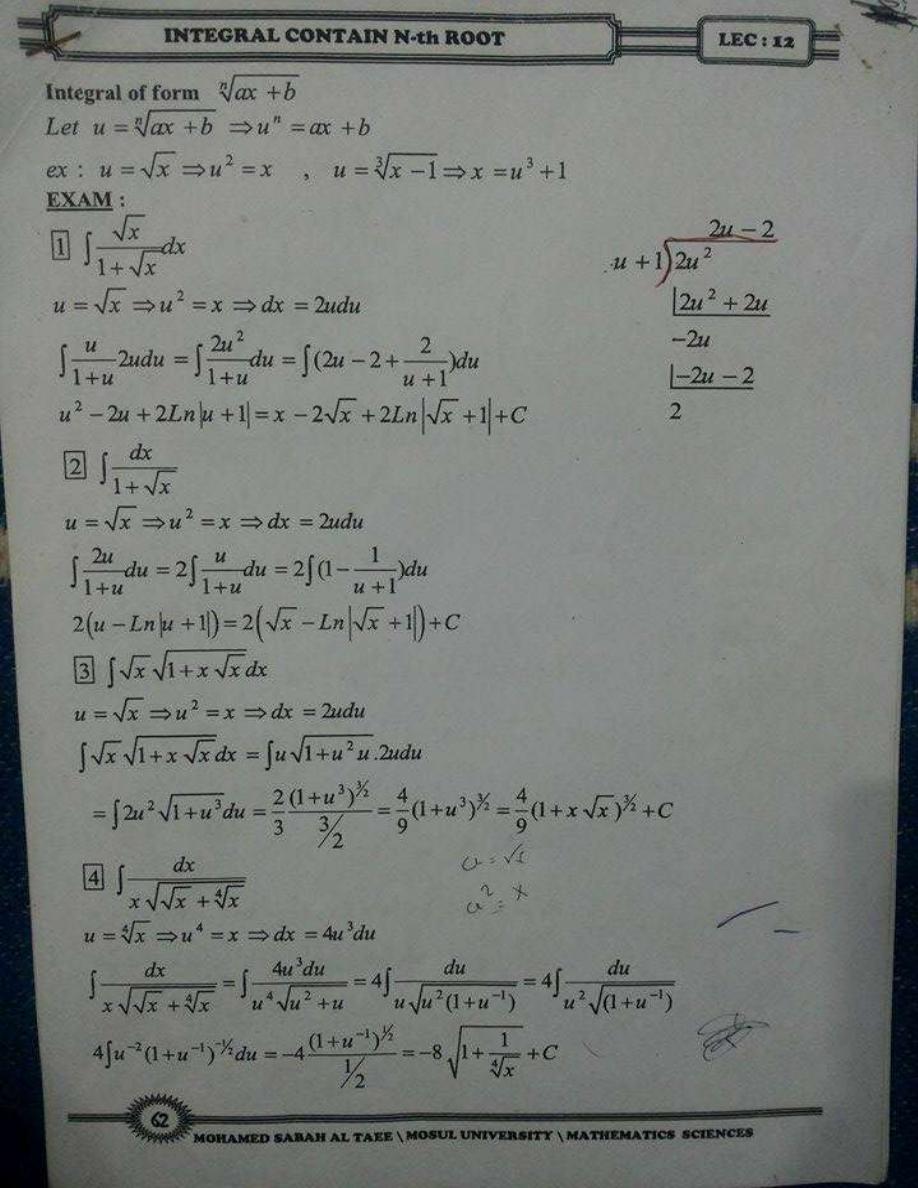 INTEGRAL CONTAIN N-th ROOT
LEC : 12
Integral of form ⁿ√(ax + b)
Let u = ⁿ√(ax + b) ⇒ uⁿ = ax + b
ex : u = √x ⇒ u² = x , u = ³√(x − 1) ⇒ x = u³ + 1
EXAM :
1 ∫ √x / (1 + √x) dx
u = √x ⇒ u² = x ⇒ dx = 2udu
∫ u/(1+u) 2udu = ∫ 2u²/(1+u) du = ∫(2u − 2 + 2/(u + 1))du
u² − 2u + 2Ln|u + 1| = x − 2√x + 2Ln|√x + 1| + C
2u − 2
u + 1)2u²
2u² + 2u
−2u
−2u − 2
2
2 ∫ dx / (1 + √x)
u = √x ⇒ u² = x ⇒ dx = 2udu
∫ 2u/(1+u) du = 2∫ u/(1+u) du = 2∫(1 − 1/(u + 1))du
2(u − Ln|u + 1|) = 2(√x − Ln|√x + 1|) + C
3 ∫√x √(1 + x√x) dx
u = √x ⇒ u² = x ⇒ dx = 2udu
∫√x √(1 + x√x) dx = ∫u√(1 + u²u).2udu
= ∫2u²√(1 + u³)du = 2/3 (1 + u³)^(3/2) / (3/2) = 4/9 (1 + u³)^(3/2) = 4/9 (1 + x√x)^(3/2) + C
u = √x
u² = x
4 ∫ dx / (x√(√x + ⁴√x))
u = ⁴√x ⇒ u⁴ = x ⇒ dx = 4u³du
∫ dx / (x√(√x + ⁴√x)) = ∫ 4u³du / (u⁴√(u² + u)) = 4∫ du / (u√(u²(1 + u⁻¹))) = 4∫ du / (u²√((1 + u⁻¹)))
4∫u⁻²(1 + u⁻¹)^(−1/2) du = −4 (1 + u⁻¹)^(1/2) / (1/2) = −8 √(1 + 1/⁴√x) + C
62
MOHAMED SABAH AL TAEE \ MOSUL UNIVERSITY \ MATHEMATICS SCIENCES